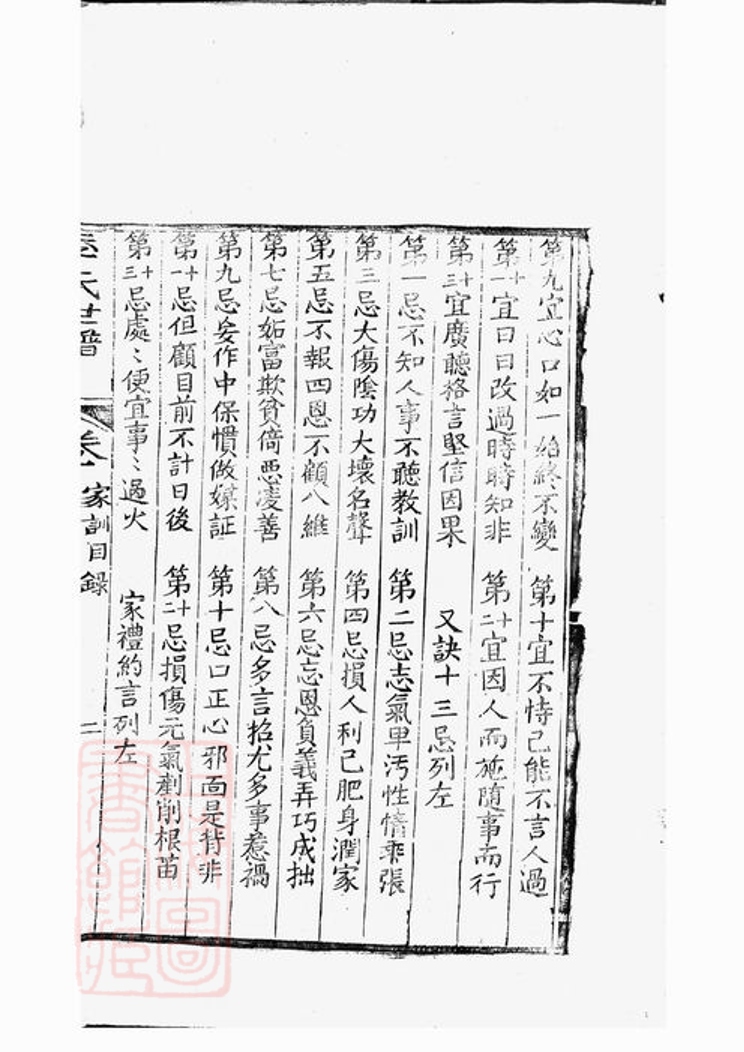 第九宜心口如一始終不變　第十宜不恃己能不言人過
第十一宜日日改過時時知非　第十二宜因人而施隨事而行
第十三宜廣聽格言堅信因果　又訣十三忌列左
第一忌不知人事不聽教訓　第二忌志氣卑汚性情乖張
第三忌大傷陰功大壞名聲　第四忌損人利己肥身潤家
第五忌不報四恩不顧八維　第六忌忘恩負義弄巧成拙
第七忌妬富欺貧倚惡凌善　第八忌多言招尤多事惹禍
第九忌妄作中保慣做媒証　第十忌口正心邪面是背非
第十一忌但顧目前不計日後　第十二忌損傷元氣剷削根苗
第十三忌處〻便宜事〻過火　家禮約言列左
氏世譜　卷一　家訓目錄　二